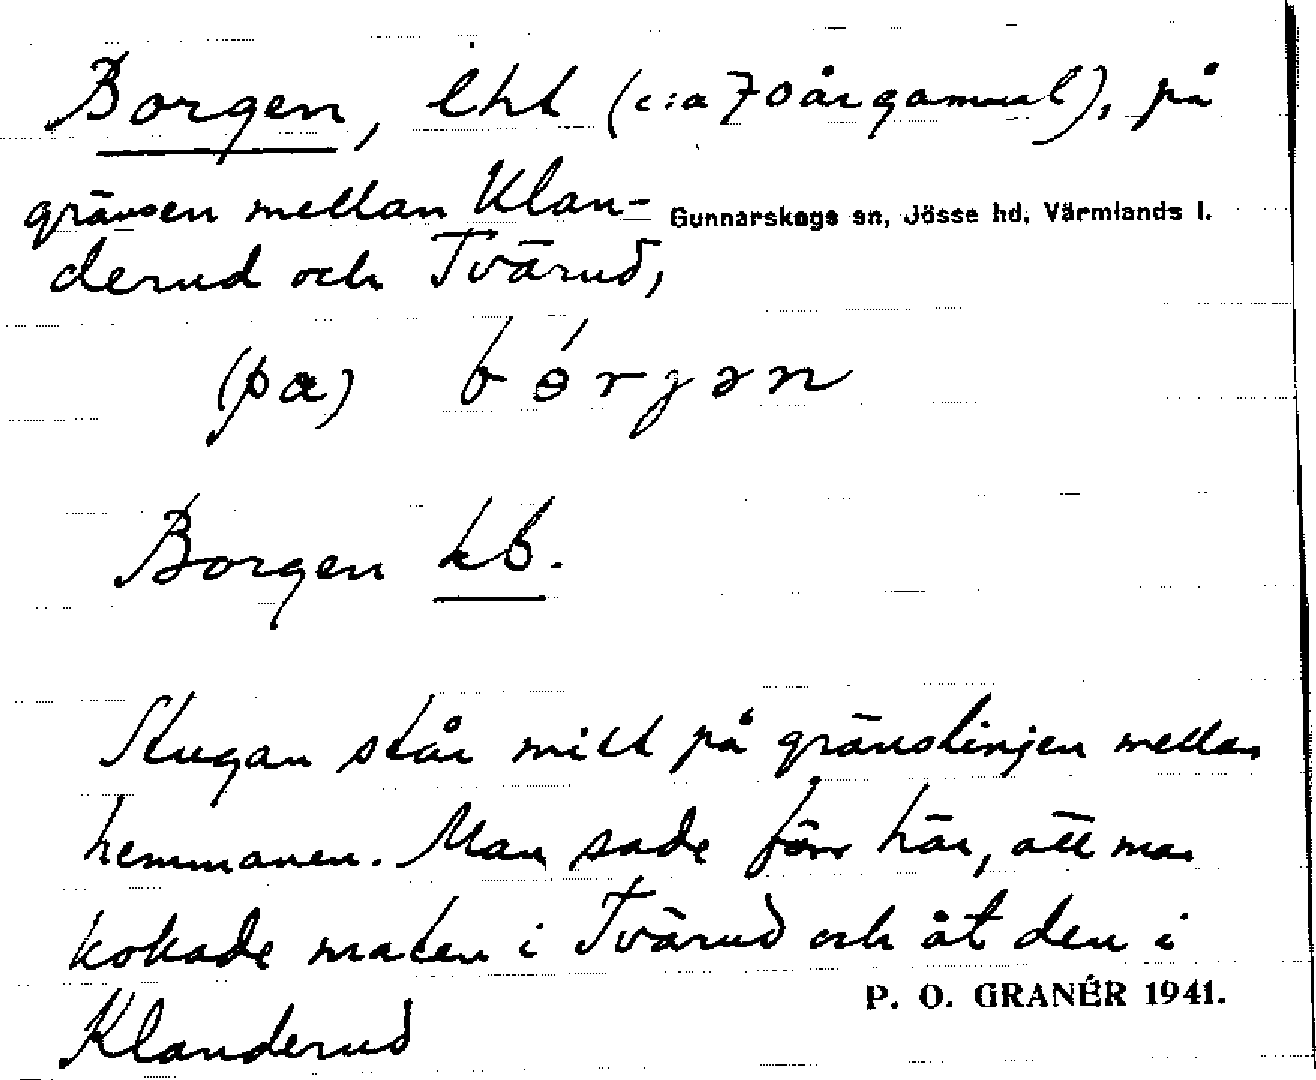 Borgen, lht (c:a 70 år gammal), på
gränsen mellan Klan-
Gunnarskogs sn, Jösse hd, Värmlands l.
derud och Tvärud,
(på)
Borgen kb.
Stugan står mitt på gränslinjen mellan
hemmanen. Man sade förr här, att man
kokade maten i Tvärud och åt den i
Klanderud
P. O. GRANÉR 1941.